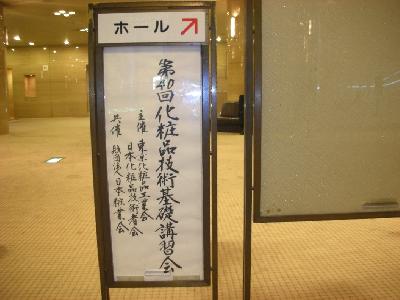 ホール
第40回化粧品技術基礎講習会
主催 東京化粧品工業会
日本化粧品技術者会
共催 財団法人日本粧業会